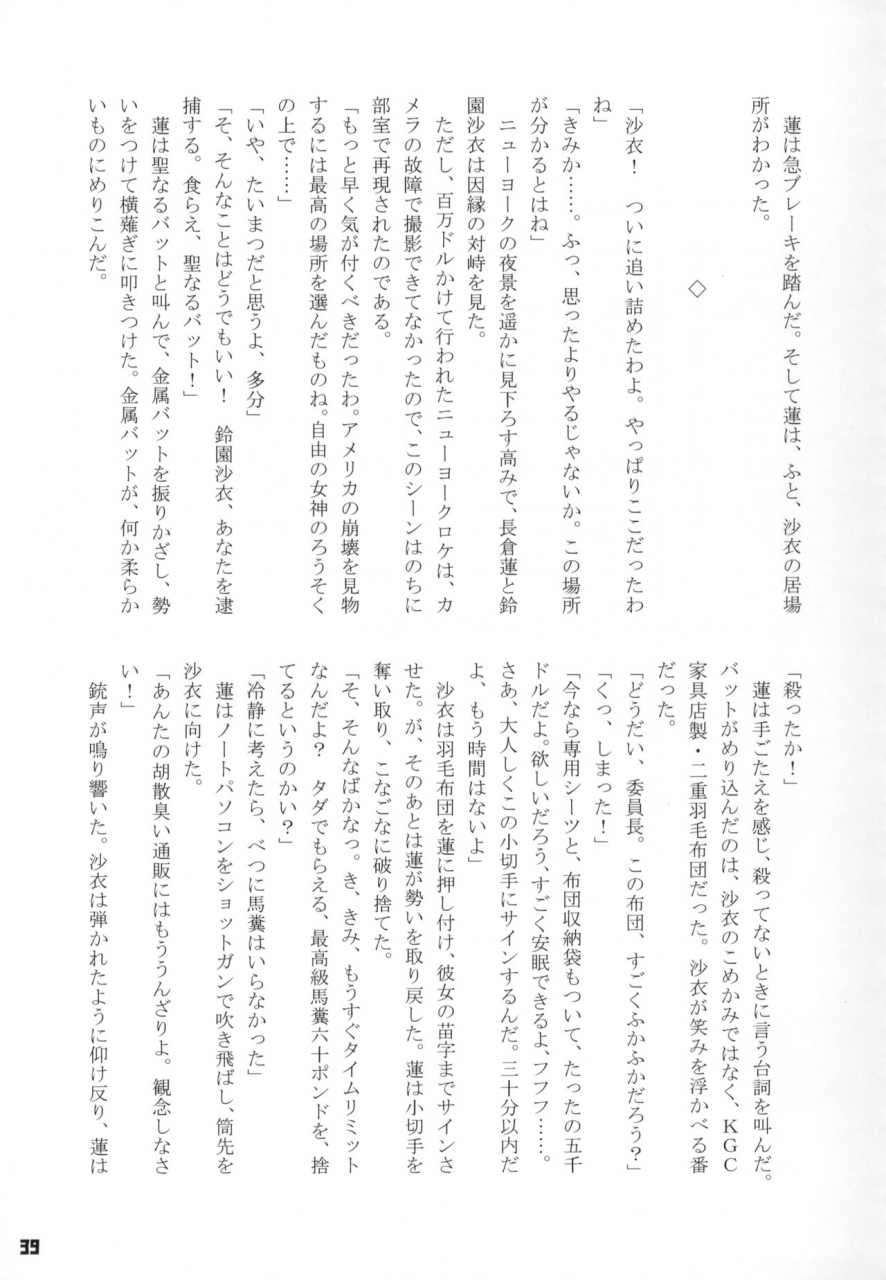 蓮は急ブレーキを踏んだ。そして蓮は、ふと、沙衣の居場
所がわかった。
◇
「沙衣！　ついに追い詰めたわよ。やっぱりここだったわ
ね」
「きみか……。ふっ、思ったよりやるじゃないか。この場所
が分かるとはね」
ニューヨークの夜景を遥かに見下ろす高みで、長倉蓮と鈴
園沙衣は因縁の対峙を見た。
ただし、百万ドルかけて行われたニューヨークロケは、カ
メラの故障で撮影できてなかったので、このシーンはのちに
部室で再現されたのである。
「もっと早く気が付くべきだったわ。アメリカの崩壊を見物
するには最高の場所を選んだものね。自由の女神のろうそく
の上で……」
「いや、たいまつだと思うよ、多分」
「そ、そんなことはどうでもいい！　鈴園沙衣、あなたを逮
捕する。食らえ、聖なるバット！」
蓮は聖なるバットと叫んで、金属バットを振りかざし、勢
いをつけて横薙ぎに叩きつけた。金属バットが、何か柔らか
いものにめりこんだ。
「殺ったか！」
蓮は手ごたえを感じ、殺ってないときに言う台詞を叫んだ。
バットがめり込んだのは、沙衣のこめかみではなく、ＫＧＣ
家具店製・二重羽毛布団だった。沙衣が笑みを浮かべる番
だった。
「どうだい、委員長。この布団、すごくふかふかだろう？」
「くっ、しまった！」
「今なら専用シーツと、布団収納袋もついて、たったの五千
ドルだよ。欲しいだろう、すごく安眠できるよ、フフフ……。
さあ、大人しくこの小切手にサインするんだ。三十分以内だ
よ、もう時間はないよ」
沙衣は羽毛布団を蓮に押し付け、彼女の苗字までサインさ
せた。が、そのあとは蓮が勢いを取り戻した。蓮は小切手を
奪い取り、こなごなに破り捨てた。
「そ、そんなばかなっ。き、きみ、もうすぐタイムリミット
なんだよ？　タダでもらえる、最高級馬糞六十ポンドを、捨
てるというのかい？」
「冷静に考えたら、べつに馬糞はいらなかった」
蓮はノートパソコンをショットガンで吹き飛ばし、筒先を
沙衣に向けた。
「あんたの胡散臭い通販にはもううんざりよ。観念しなさ
い！」
銃声が鳴り響いた。沙衣は弾かれたように仰け反り、蓮は
39